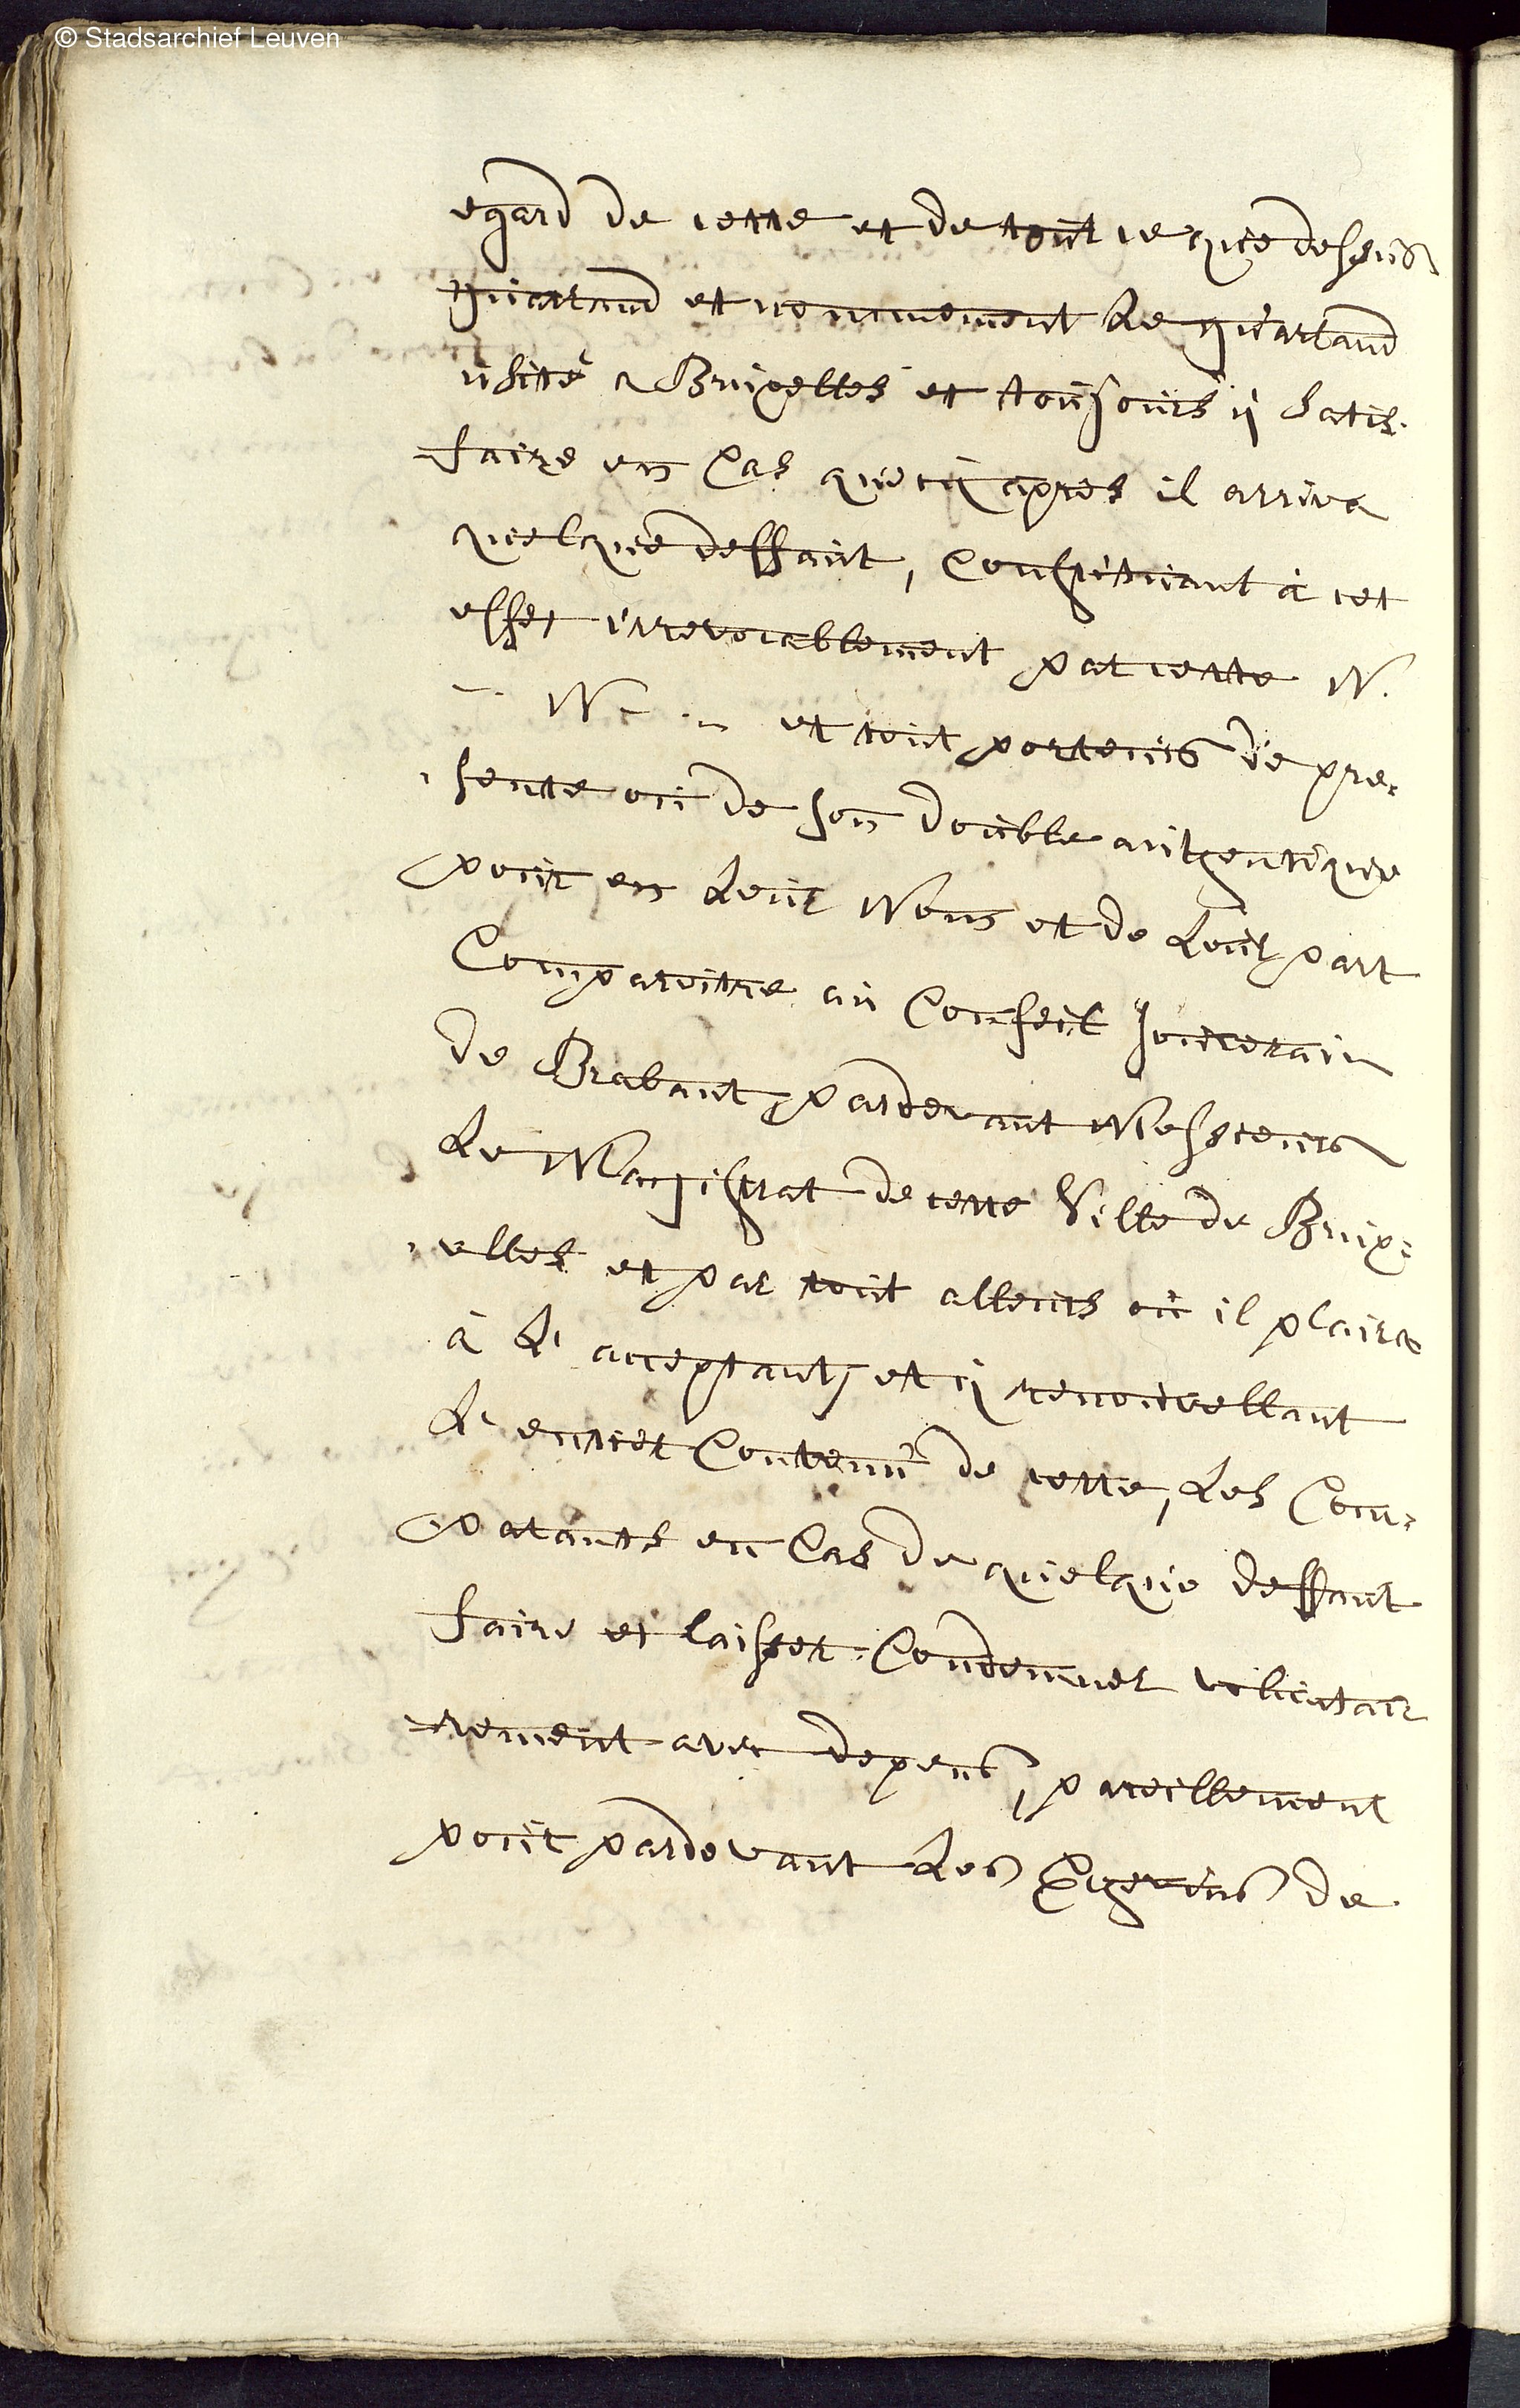 © Stadsarchief Leuven
egard de cette et de tout ce que dessus
guarand et nommement Le guarand
usitté a Bruxelles et tousiours ÿ satis-
faire en Cas que cÿ apres il arriva
quelque deffaut, Constituant à cet
effet irrevocablement par cette N.
N et tout porteurs de pre-
sente ou de son double authentique
pour en Leur Nom et de Leur part
Comparoitre au Conseil souverain
de Brabant, pardevant Messieurs
Le Magistrat de cette Ville de Brux-
elles et par tout alleurs où il plaira
à L' acceptant, et ÿ renouvellant
L' entier Contenu de cette, Les Com-
parants en Cas de quelque deffaut
faire et laisser Condemner voluntair
rement avec depens, pareillement
pour pardevant Les Echevins de